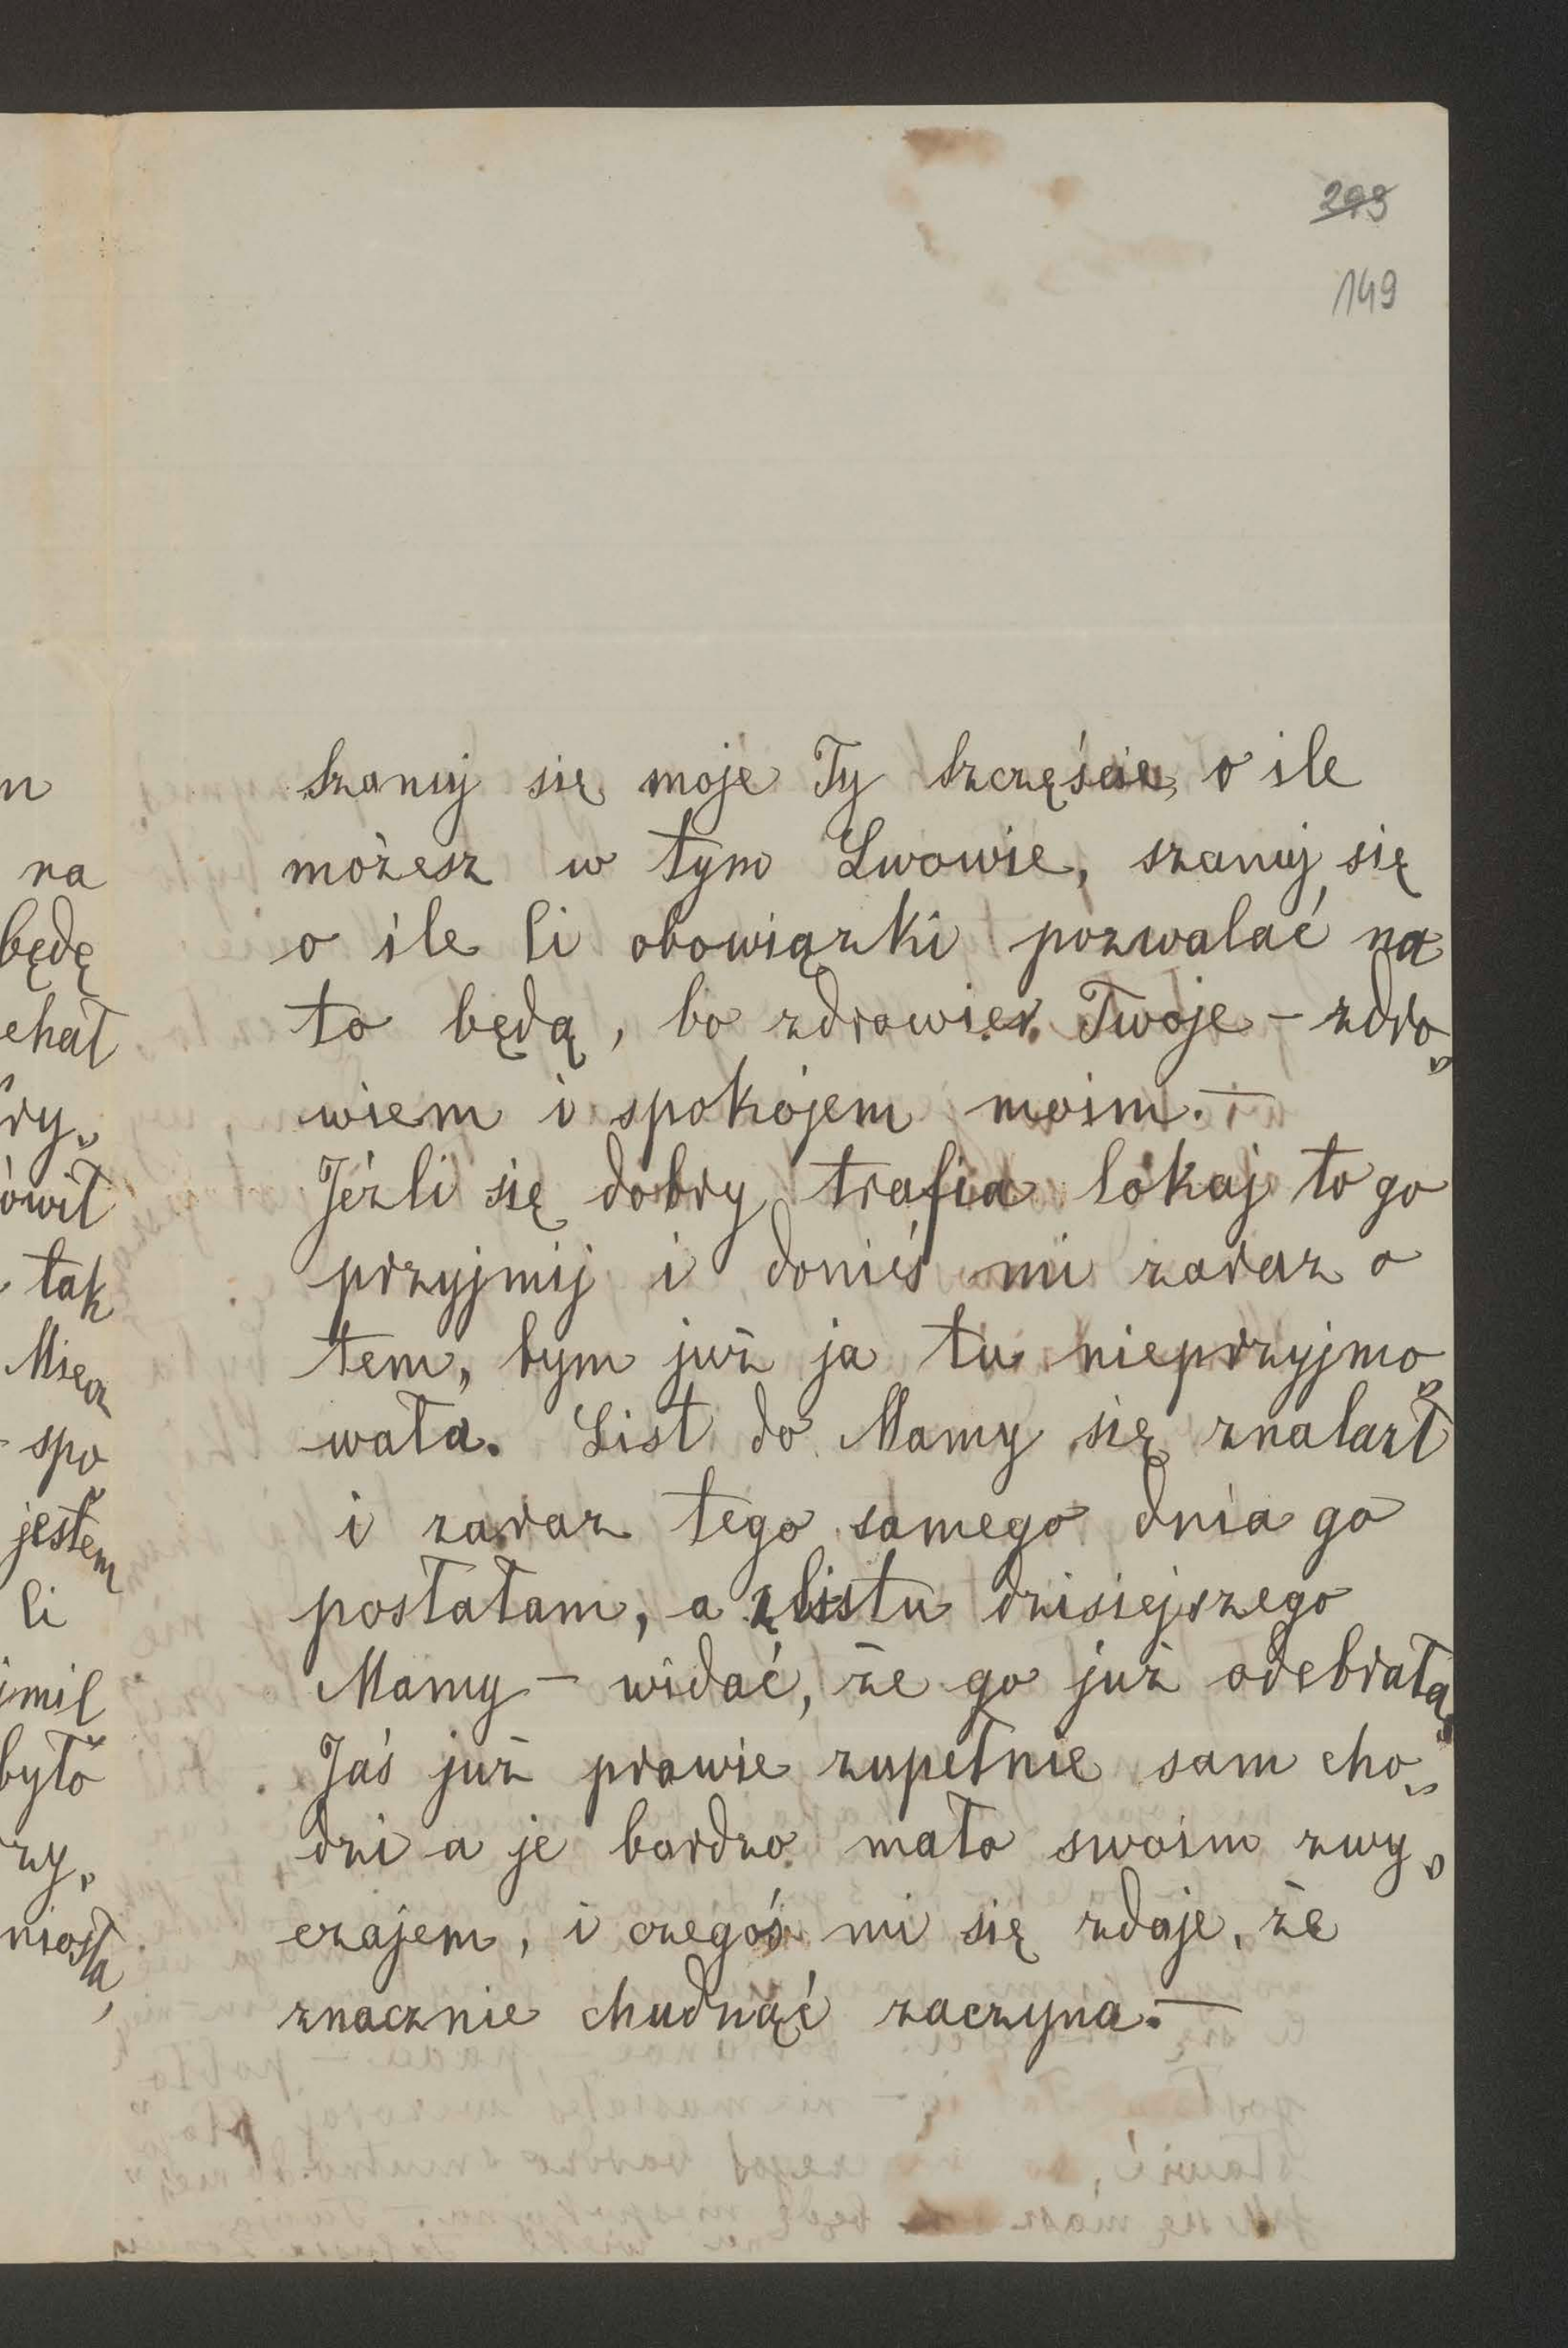 293
149
n
na
będę
chał
ry„
ówił
tak
Miecz
spo„
jestem
li
imil
było
rzy„
niosła,
Szanuj się moje Ty Szczęście, o ile
możesz w tym Lwowie, szanuj się
o ile Ci obowiązki pozwalać na
to będą, bo zdrowie Twoje – zdro„
wiem i spokojem moim. –
Jeźli się dobry trafia lokaj to go
przyjmij i donieś mi zaraz o
tem, bym już ja tu nieprzyjmo„
wała. List do Mamy się znalazł
i zaraz tego samego dnia go
posłałam, a z listu dzisiejszego
Mamy – widać, że go już odebrała,
Jaś już prawie zupełnie sam cho„
dzi a je bardzo mało swoim zwy„
czajem, i czegoś mi się zdaje, że
znacznie chudnąć zaczyna. –